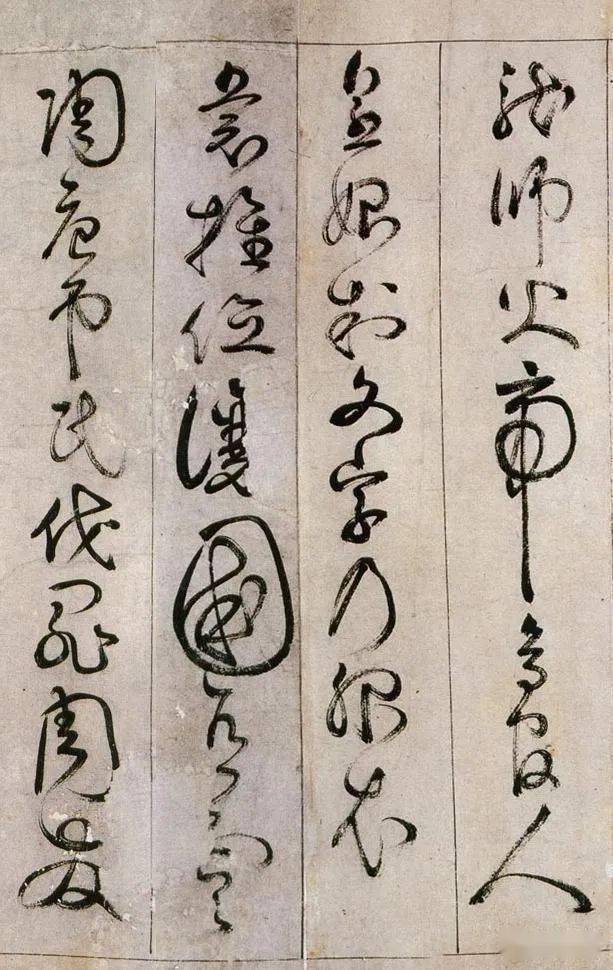 龍師火帝鳥官人
皇始制文字乃服衣
裳推位讓國有虞
陶唐弔民伐罪周發